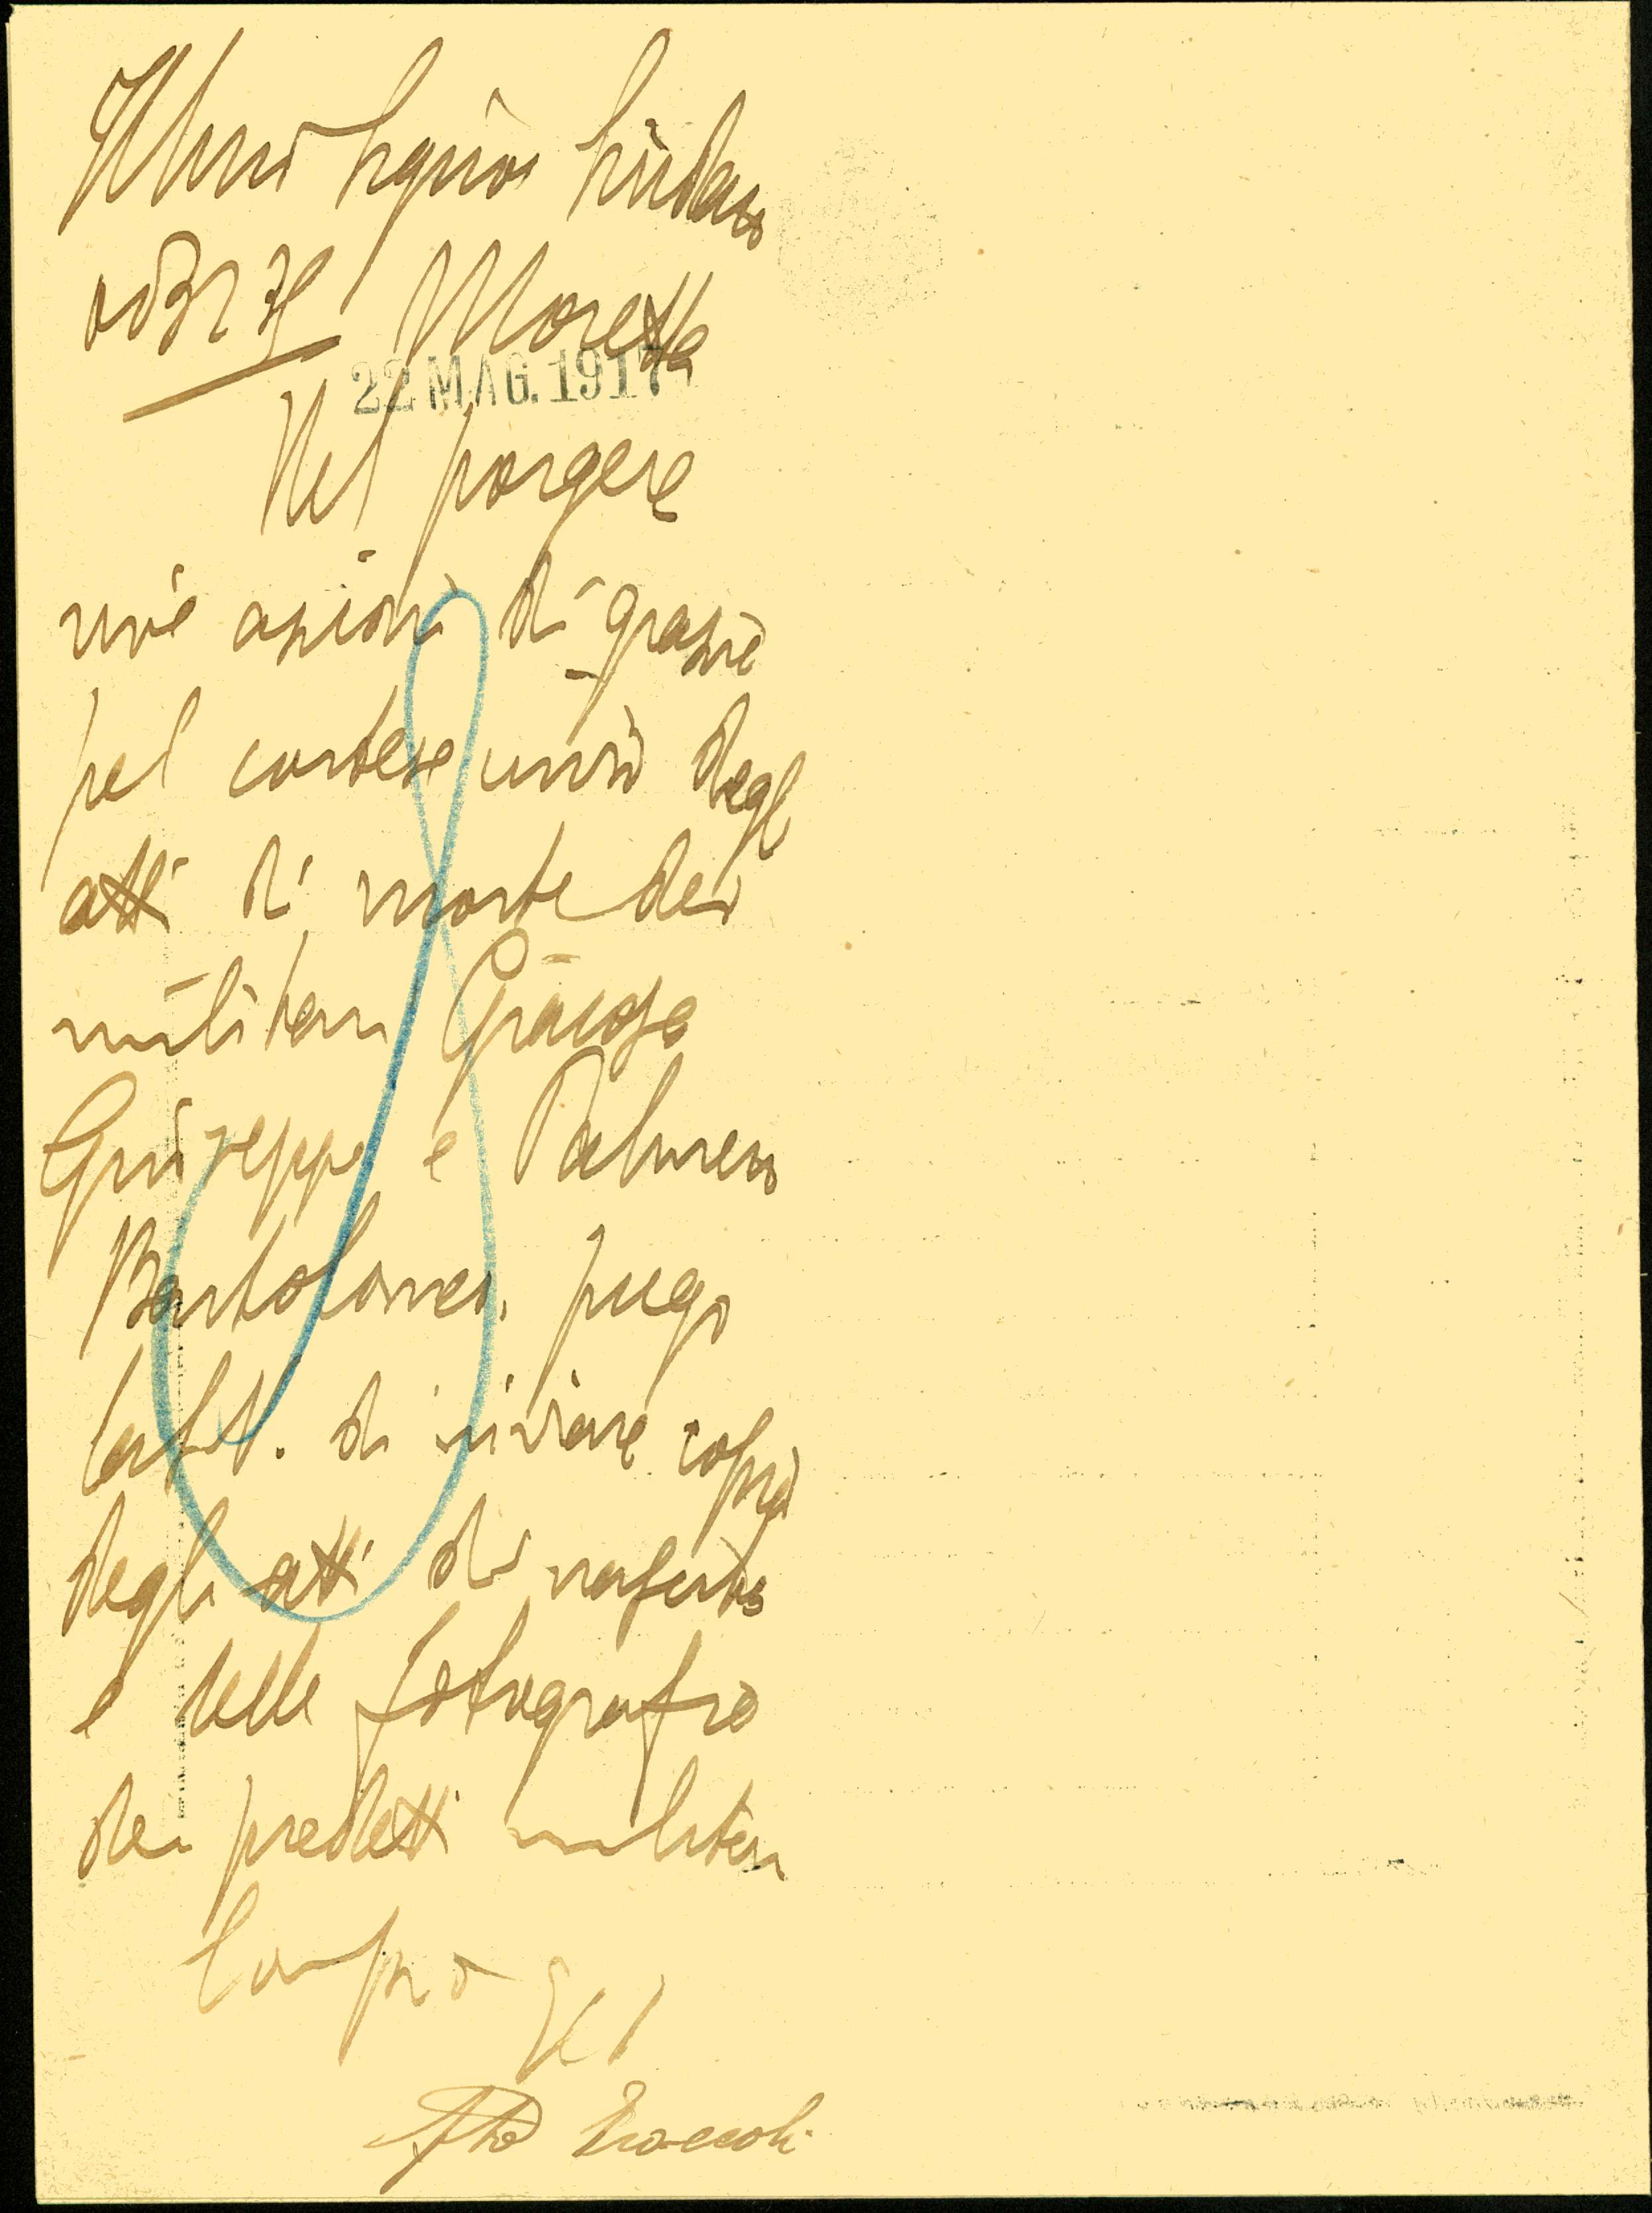 Ill.mo Signor Sindaco
Moretta
22 MAG. 1917
Nel porgere
vive azioni di grazie
pel cortese invio degli
atti di morte dei
militari
Giuseppe e Palmero
Bartolomeo, prego
la S.V. di inviare copia
degli atti di nascita
e delle fotografie
dei predetti militari